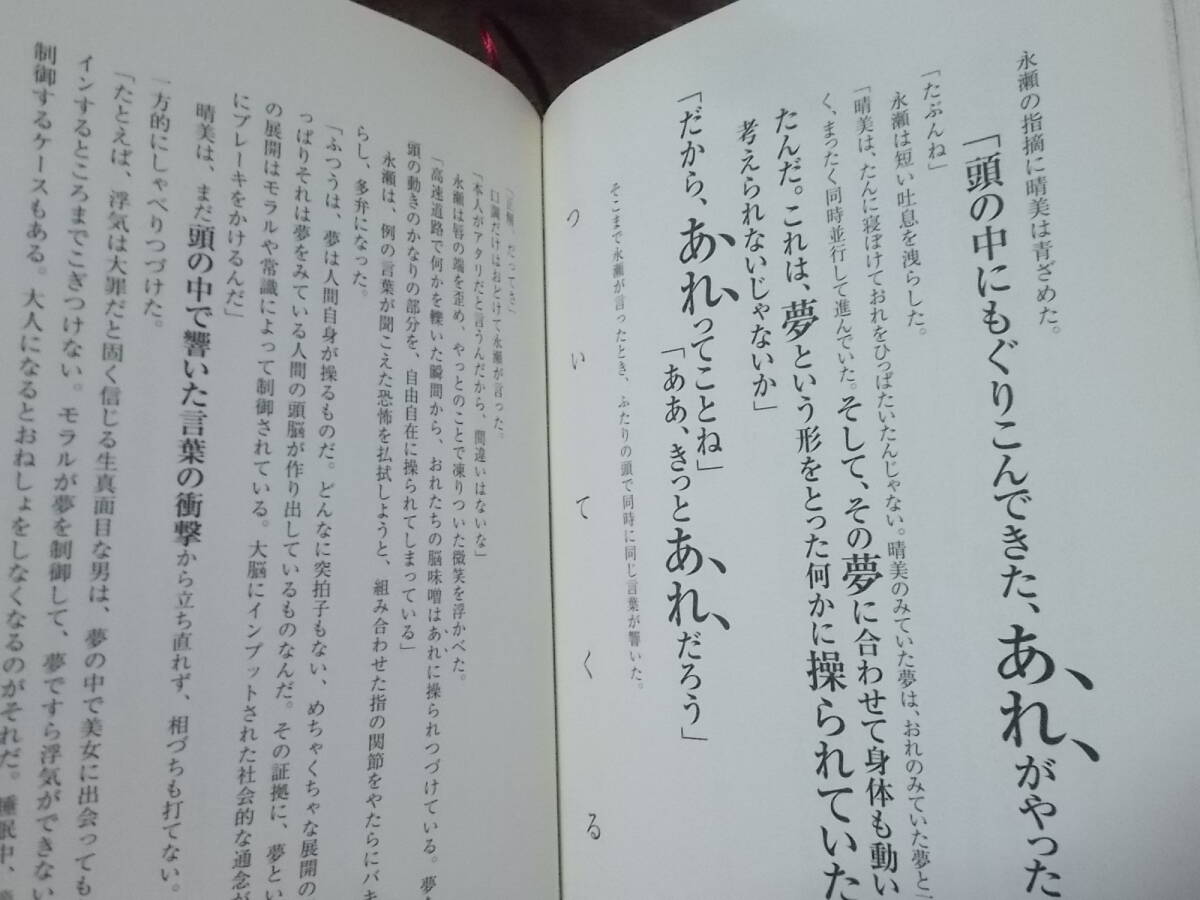 永瀬の指摘に晴美は青ざめた。
「頭の中にもぐりこんできた、あれがやった
「たぶんね」
永瀬は短い吐息を洩らした。
「晴美は、たんに寝ぼけておれをひっぱたいたんじゃない。晴美のみていた夢は、おれのみていた夢と
く、まったく同時並行して進んでいた。そして、その夢に合わせて身体も動い
たんだ。これは、夢という形をとった何かに操られていた
考えられないじゃないか」
「だから、あれってことね」
「ああ、きっとあれ、だろう」
そこまで永瀬が言ったとき、ふたりの頭で同時に同じ言葉が響いた。
ついてくる
だってさ」
口調だけはおどけて永瀬が言った。
「本人がアタリだと言うんだから、間違いはないな」
永瀬は唇の端を歪め、やっとのことで凍りついた微笑を浮かべた。
「高速道路で何かを轢いた瞬間から、おれたちの脳味噌はあれに操られつづけている。夢
頭の動きのかなりの部分を、自由自在に操られてしまっている」
永瀬は、例の言葉が聞こえた恐怖を払拭しようと、組み合わせた指の関節をやたらにバキ
らし、多弁になった。
「ふつうは、夢は人間自身が操るものだ。どんなに突拍子もない、めちゃくちゃな展開の
っぱりそれは夢をみている人間の頭脳が作り出しているものなんだ。その証拠に、夢とい
の展開はモラルや常識によって制御されている。大脳にインプットされた社会的な通念が
にブレーキをかけるんだ」
晴美は、まだ頭の中で響いた言葉の衝撃から立ち直れず、相づちも打てない。
一方的にしゃべりつづけた。
「たとえば、浮気は大罪だと固く信じる生真面目な男は、夢の中で美女に出会っても
インするところまでこぎつけない。モラルが夢を制御して、夢ですら浮気ができない
制御するケースもある。大人になるとおねしょをしなくなるのがそれだ。睡眠中、